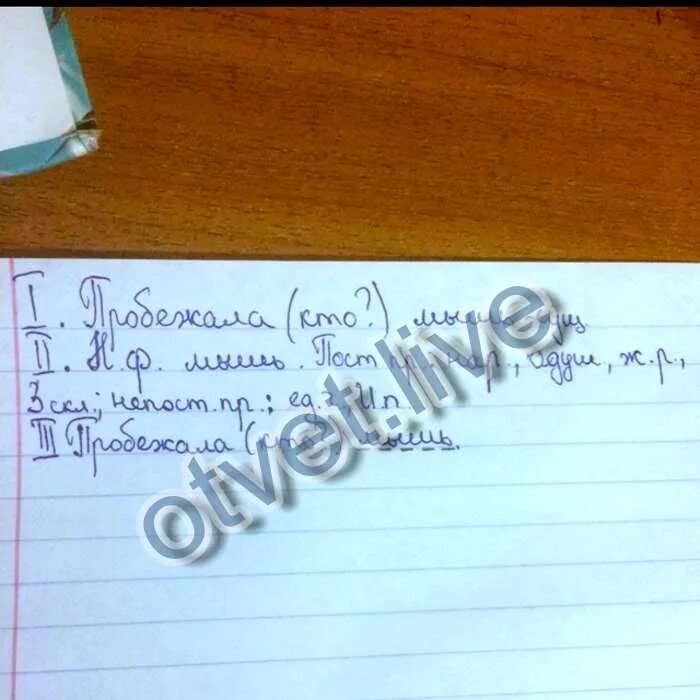 I. Пробежала (кто?) мышь сущ
II. Н.ф. мышь. Пост.пр.: нар., одуш, ж.р.,
3 скл.; непост.пр.: ед.ч, И.п
III Пробежала (кто? мышь.
otvet.live